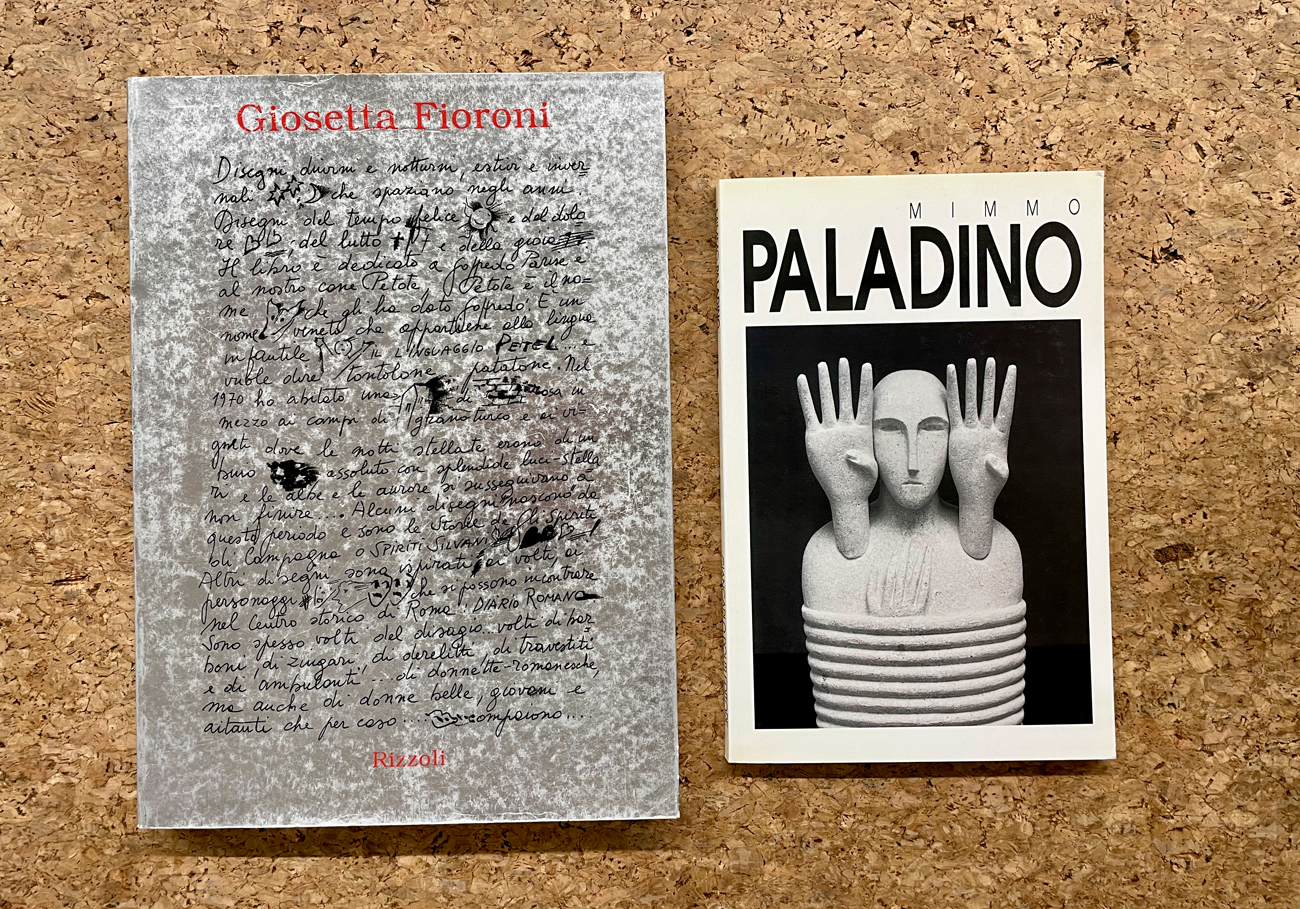 Giosetta Fioroni
Disegni, diurni e notturni, estivi e inver=
nali che spaziano negli anni.
Disegni del tempo felice e del dolo
re del lutto e della gioia
Il libro è dedicato a Goffredo Parise e
al nostro cane Petote, Petote è il no=
me che gli ha dato Goffredo. È un
nome veneto che appartiene alla lingua
infantile IL LINGUAGGIO PETEL... e
vuole dire tontolone, patatone. Nel
1970 ho abitato una di rosa in
mezzo ai campi di granoturco e ai vi-
gneti dove le notti stellate erano di un
buio assoluto con splendide luci-stella
ri e le albe e le aurore si susseguivano a
non finire... Alcuni disegni nascono da
questo periodo e sono le Storie de Gli Spiriti
di Campagna o SPIRITI SILVANI
Altri disegni sono ispirati ai volti, ai
personaggi che si possono incontrare
nel centro storico di Roma: DIARIO ROMANO
Sono spesso volti del disagio.. volti di bar
boni, di zingari, di derelitti, di travestiti
e di ambulanti... di donnette-romanesche,
ma anche di donne belle, giovani e
aitanti che per caso .... compaiono....
Rizzoli
MIMMO
PALADINO